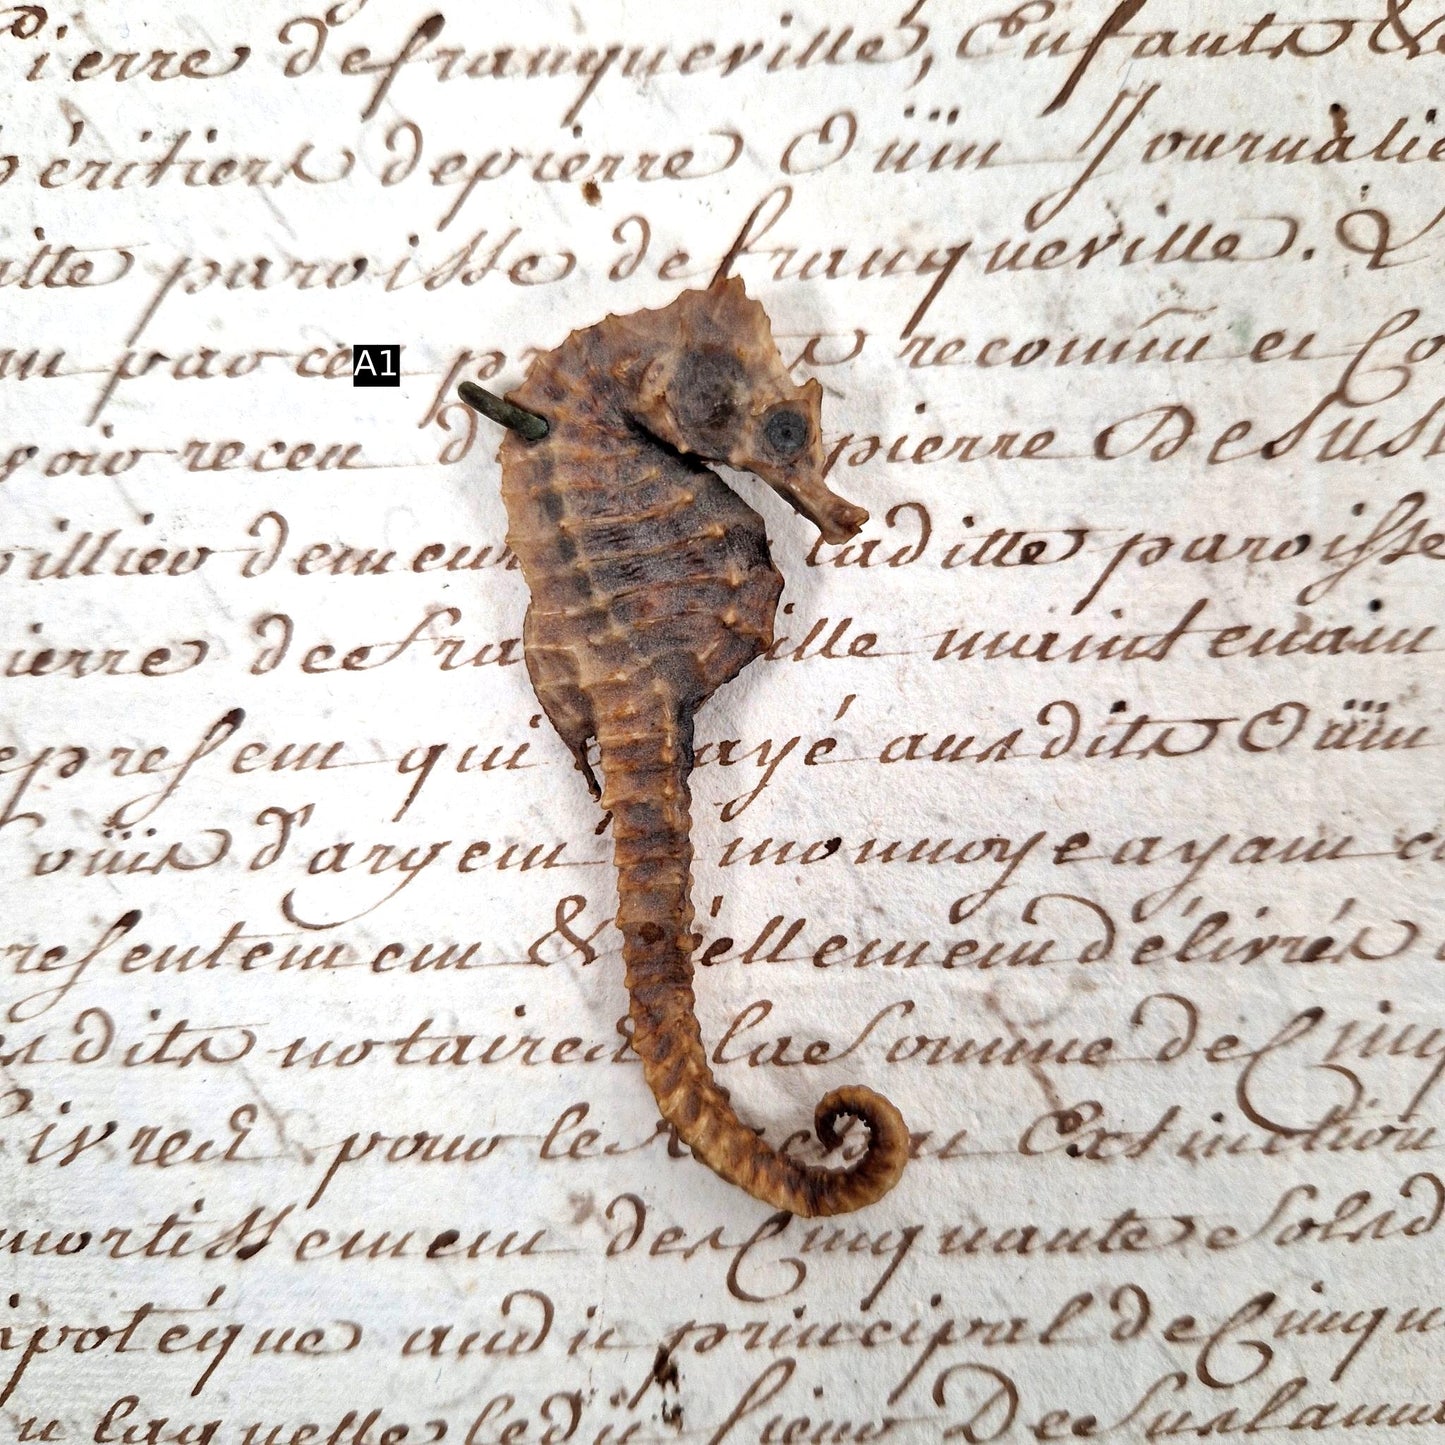 Pierre defranqueville, Enfants &
héritiers depierre Oüin Journalie
ditte paroisse defranqueville. L
par ces recon̄u et Co
A1
avoir receu pierre DeSusl
demeur laditte paroisse
pierre deefra ille maintenant
present qui payé ausdits Oüin
Louis d'argent monnoyeayant
presentement & réellement délivrés
notaires laeSomme de Cinq
Livres pour Extinction
amortissement des Cinquante Solsd
hipotéque au dit principal de Cinqu
laquelle ledit Sieur DeeSuslanne